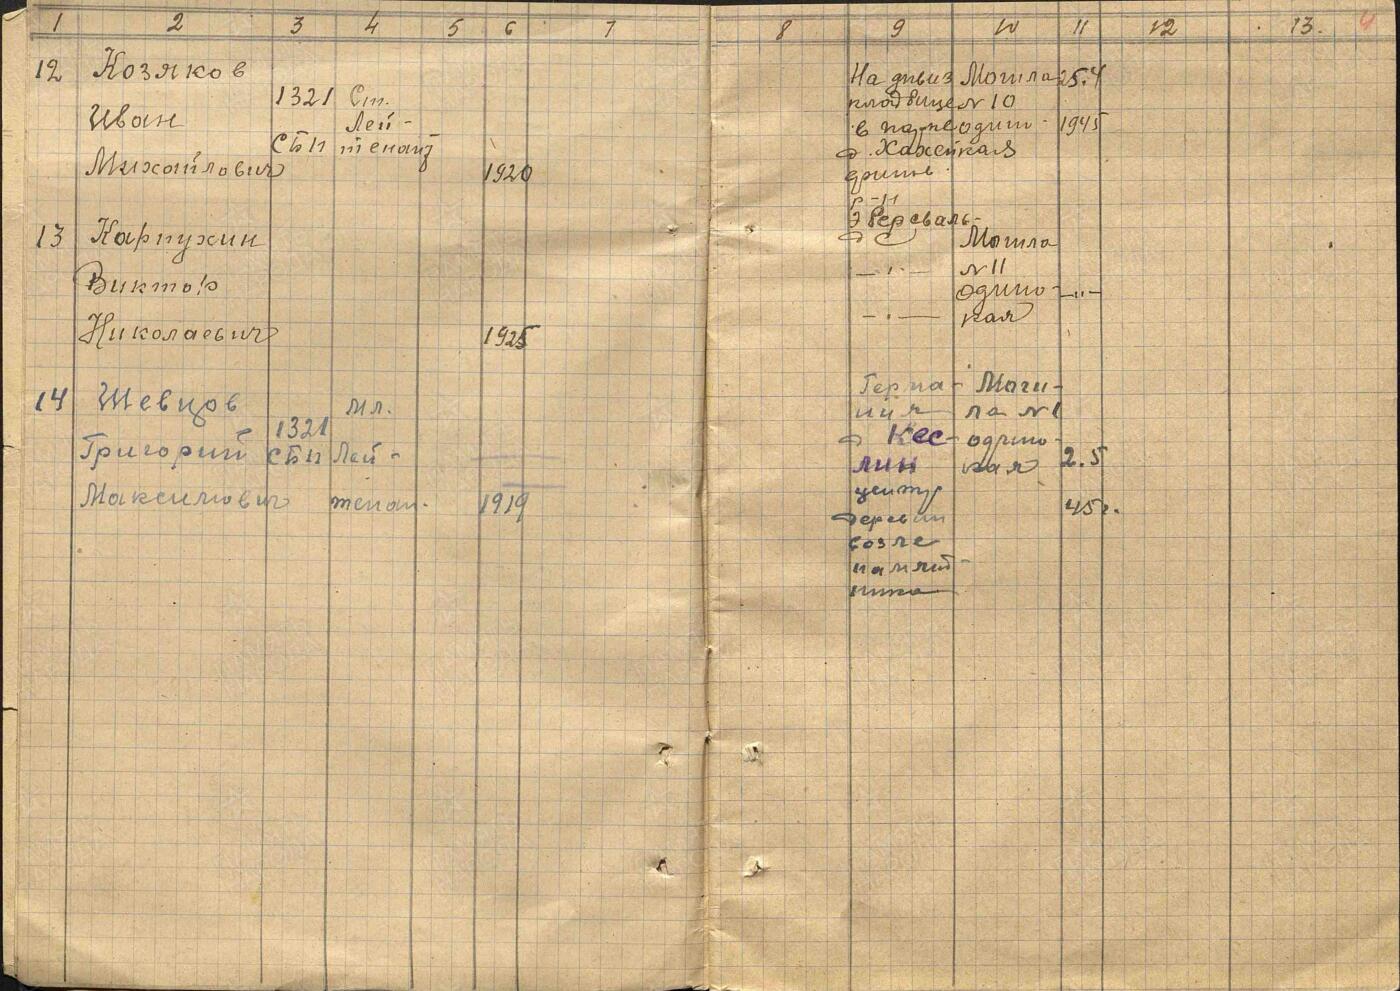 1 2 3 4 5 6 7 8 9 10 11 12 13. 4
12 Козяков
Иван
Михайлович
1321
СБП
Ст.
Лей-
тенант
1920
На дивиз
кладбище
в парке
д. Хахей
р-н
Эберсваль-
де
Могила
№ 10
одино-
кая
25.4
1945
13 Карпухин
Виктор
Николаевич
1925
—·—
—·—
Могила
№ 11
одино-
кая
—"—
14 Шевцов
Григорий
Максимович
1321
СБП
Мл.
Лей-
тенан.
1919
Герма-
ния
д Кес-
лин
центр
деревни
возле
памят-
ника
Моги-
ла №1
одино-
кая
2.5
45г.